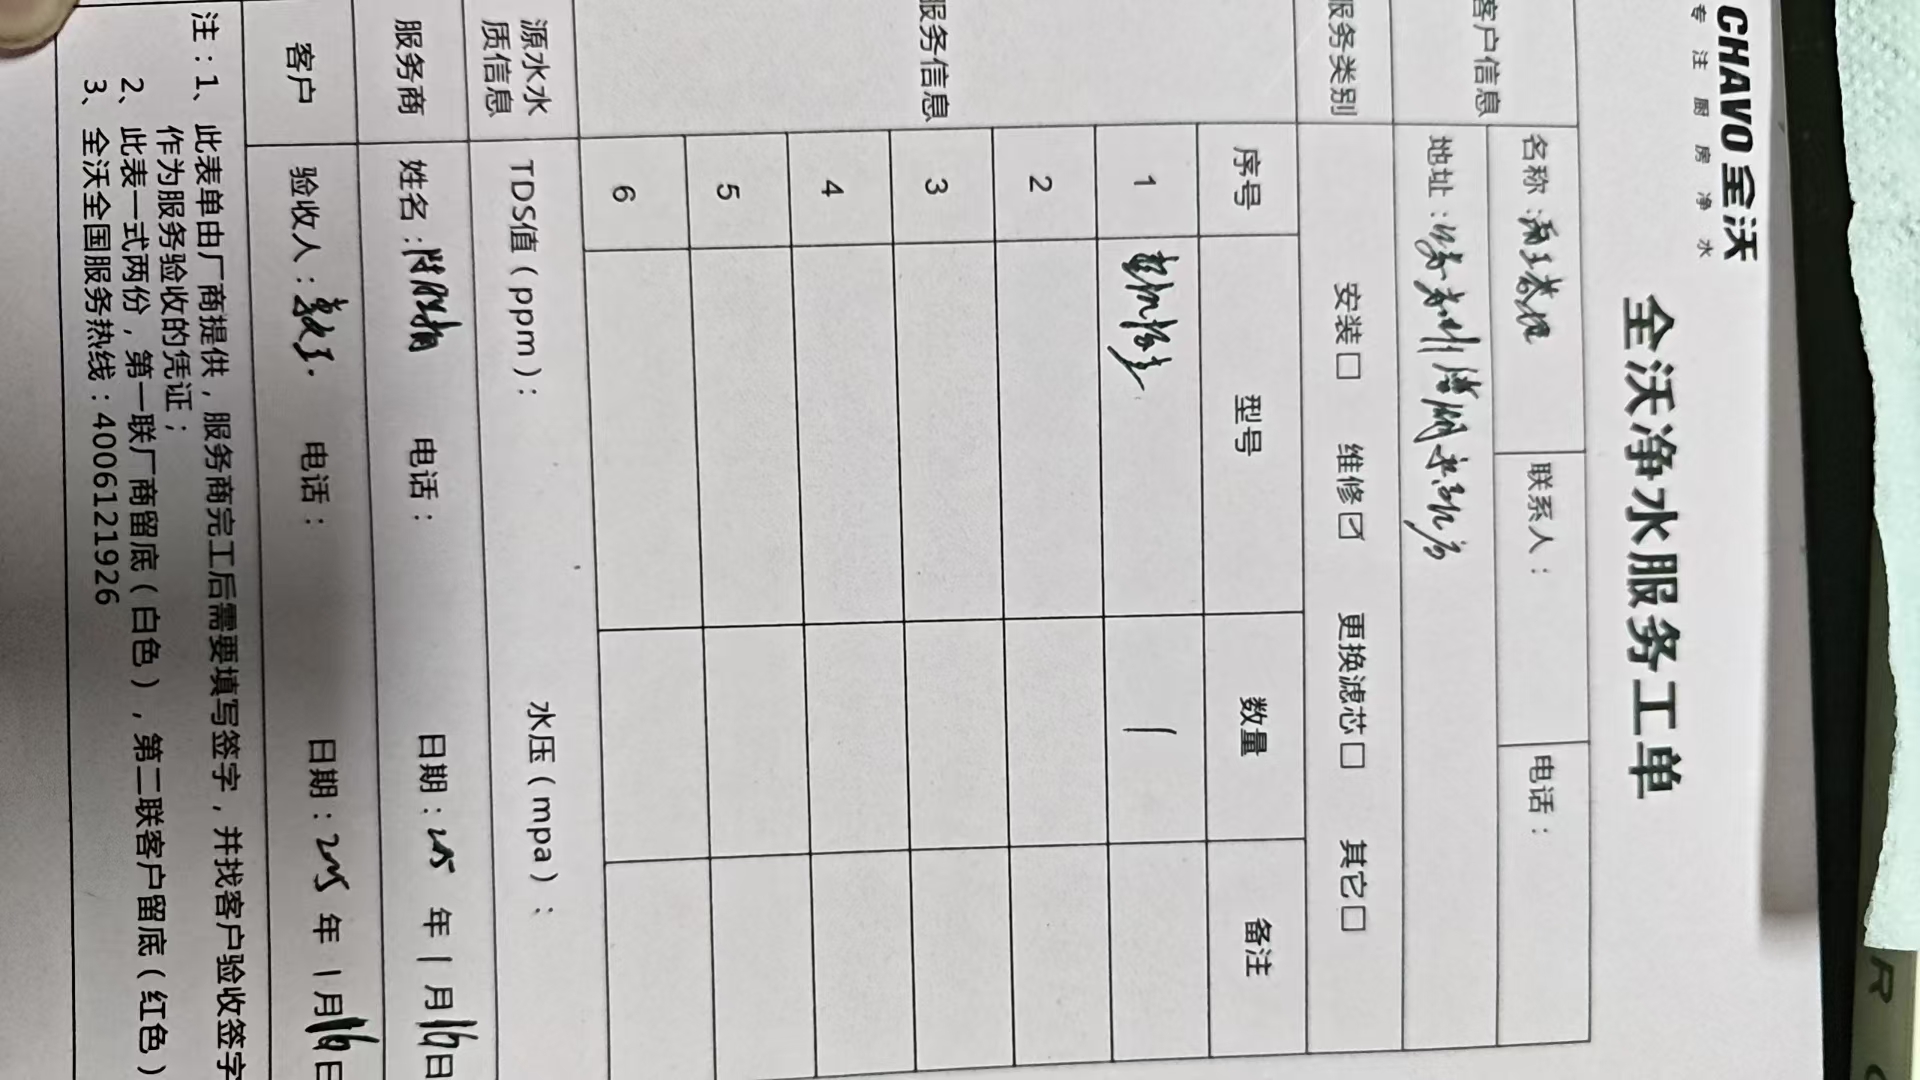 CHAVO 全沃
专注厨房净水
全沃净水服务工单
客户信息
名称：
联系人：
电话：
地址：江苏苏州
服务类别
安装□ 维修☑ 更换滤芯□ 其它□
服务信息
序号 型号 数量 备注
1 1
2
3
4
5
6
源水水质信息
TDS值（ppm）： 水压（mpa）：
服务商
姓名： 电话： 日期：2025 年 1 月 16 日
客户
验收人： 电话： 日期：2025 年 1 月 16 日
注：1、此表单由厂商提供，服务商完工后需要填写签字，并找客户验收签字
作为服务验收的凭证；
2、此表一式两份，第一联厂商留底（白色），第二联客户留底（红色）
3、全沃全国服务热线：4006121926